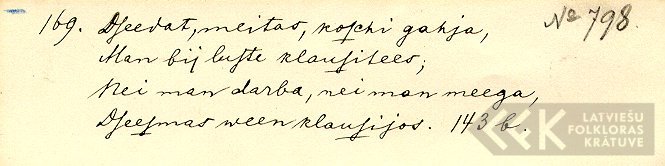 169. Dseedat, meitas, koschi gahja, № 798.
Man bij luste klausitees;
Nei man darba, nei man meega,
Dseesmas ween klausijos. 143 b.
LATVIEŠU
FOLKLORAS
KRĀTUVE